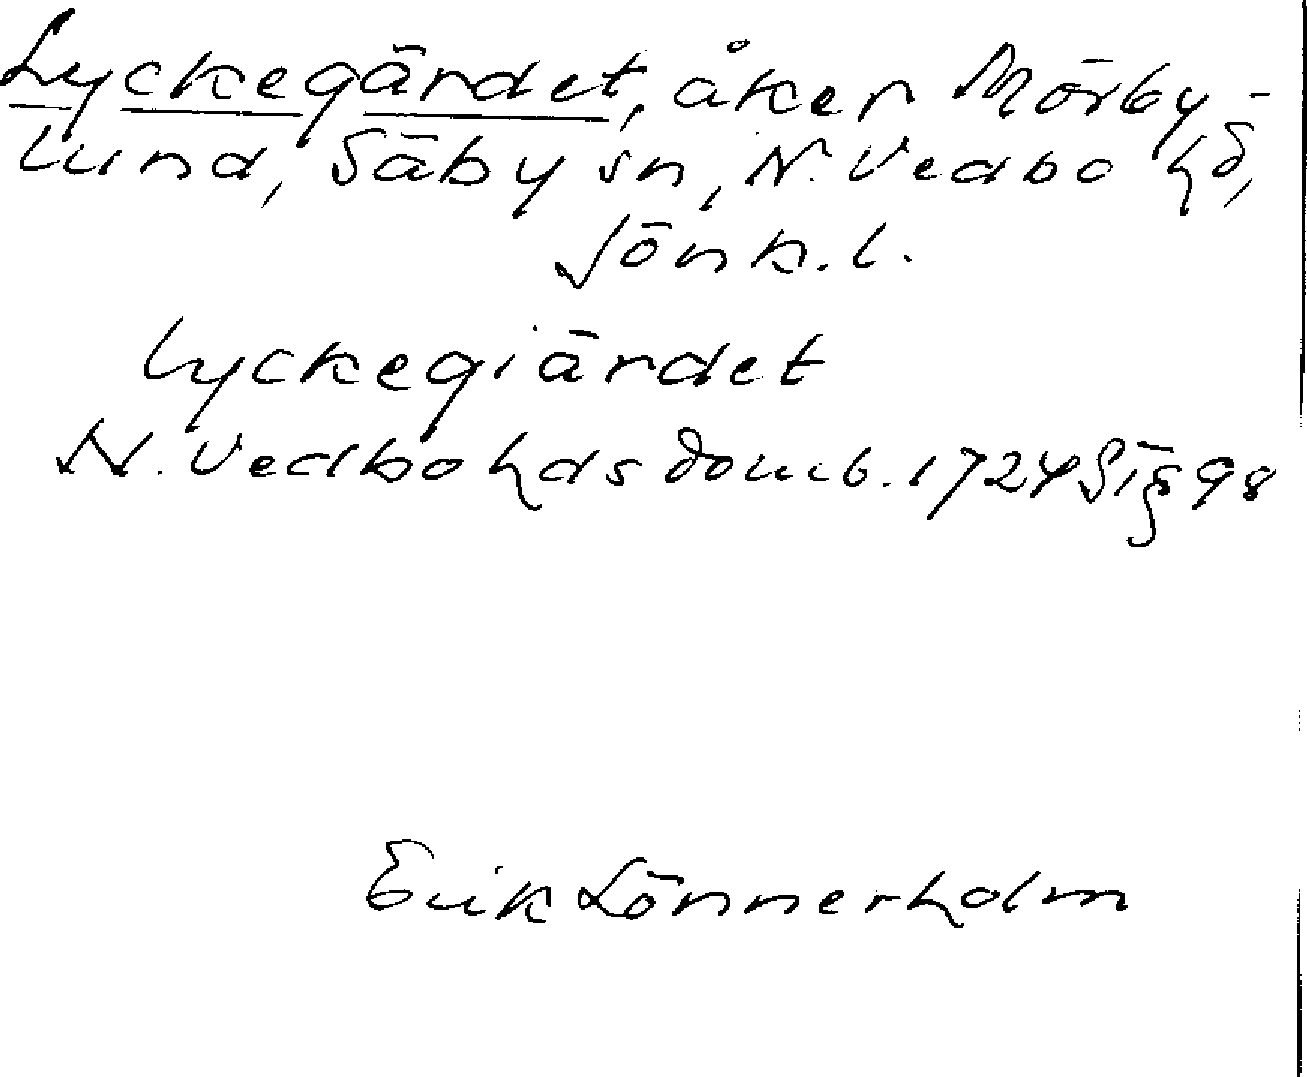 Lyckegärdet, åker Mörby-
lund, Säby sn, N. Vedbo hd,
Jönk. l.
Lyckegiärdet
N. Vedbo hds domb. 1724 § 98
Erik Lönnerholm